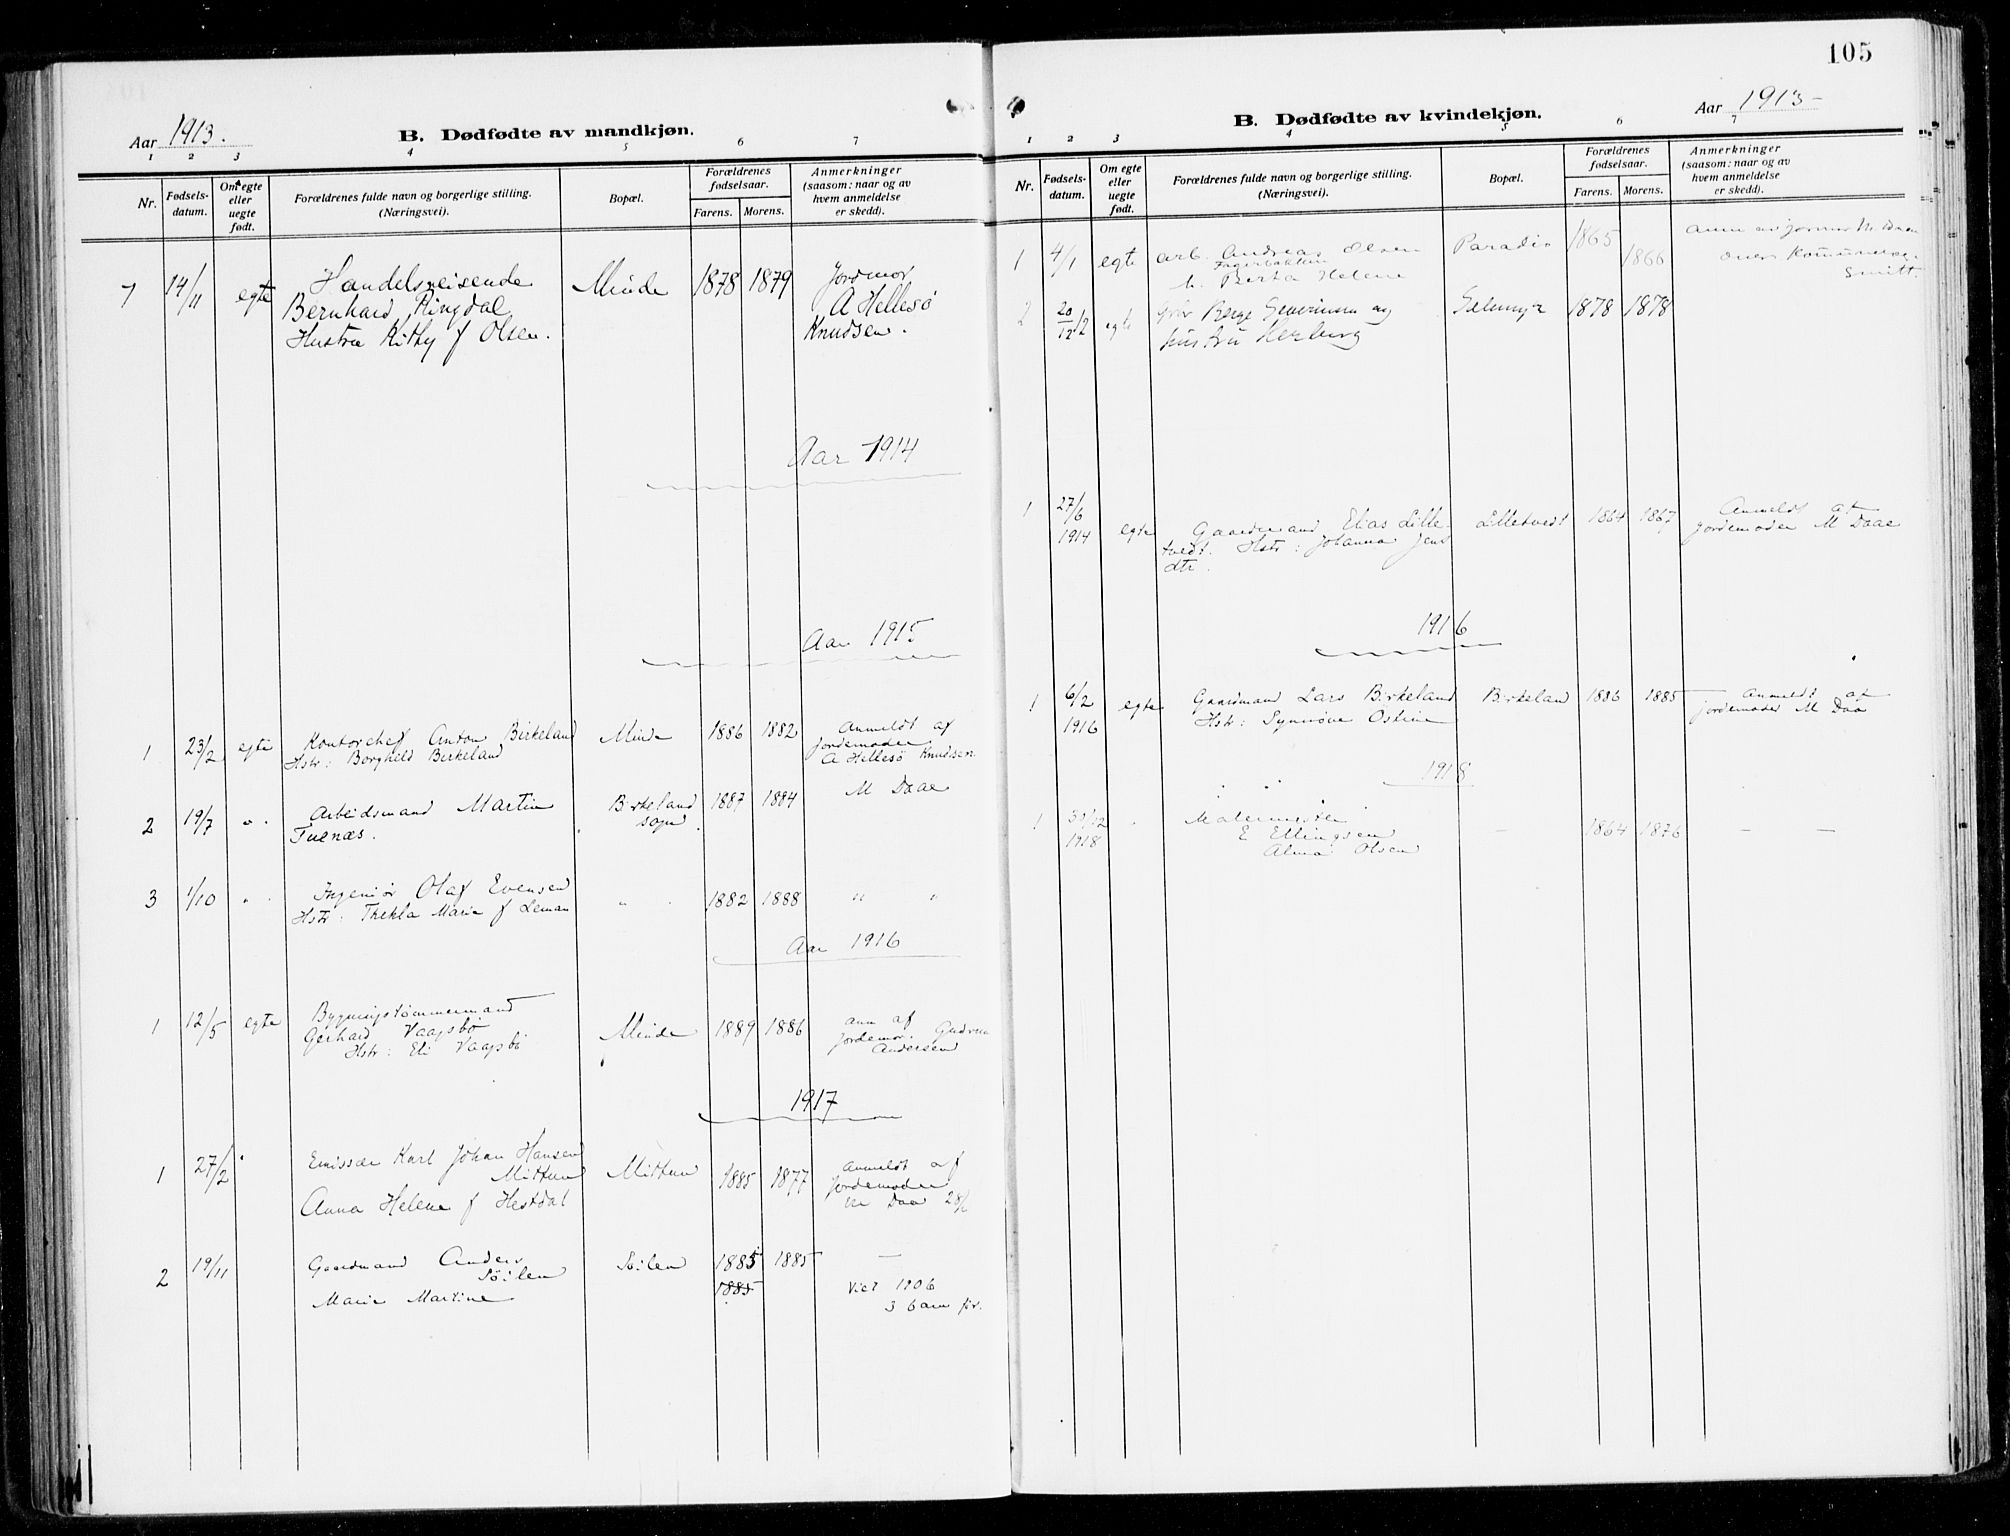 Aar 1913.
B. Dødfødte av mandkjøn.
1 2 3 4 5 6 7
Nr.
Fødsels-
datum.
Om egte
eller
uegte
født.
Forældrenes fulde navn og borgerlige stilling.
(Næringsvei).
Bopæl.
Forældrenes
fødselsaar.
Farens. Morens.
Anmerkninger
(saasom: naar og av
hvem anmeldelse
er skedd).
7 14/11 egte Handelsreisende Minde 1878 1879 Jordmor
Bernhard Ringdal A Hellesö
Hustru Kitty f Olsen. Knudsen.
Aar 1914
Aar 1915
1 23/2 egte Kontorchef Anton Birkeland Minde 1886 1882 Anmeldt af
Hstr: Borghild Birkeland jordemoder
A Hellesö Knudsen
2 19/7 " Arbeidsmand Martin Birkeland 1887 1884 M Daae
sogn
3 1/10 " Ingeniör Olaf Evensen " 1882 1888 " "
Hstr: Thekla Marie f Leman
Aar 1916
1 12/5 egte Bygningstömmermand
Gerhard Vaagsbö Minde 1889 1886 anm af
Hstr: Eli Vaagsbö jordemor. Gudrun
Andersen
1917
1 27/2 " Emissær Karl Johan Hansen
Mittun Mittun 1885 1877 Anmeldt af
jordemoder
Anna Helene f Hestdal Daae
2 19/11 Gaardmand Anders Söilen 1885 1885 —
Söilen 1885 Viet 1906
Marie Martine 3 barn før.
105
Aar 1913-
B. Dødfødte av kvindekjøn.
1 2 3 4 5 6 7
Nr.
Fødsels-
datum.
Om egte
eller
uegte
født.
Forældrenes fulde navn og borgerlige stilling.
(Næringsvei).
Bopæl.
Forældrenes
fødselsaar.
Farens. Morens.
Anmerkninger
(saasom: naar og av
hvem anmeldelse
er skedd).
1 4/1 egte arb. Andreas Olsen Paradis 1865 1866
Berta Helene
2 20/12 egte Berge Severinsen og 1878 1878
hustru
1 27/6 1914 egte Gaardmand Elias Lille- Lilletvedt 1864 1867 Anmeldt af
tvedt. Hstr: Johanna Jens jordemoder M Daae
dtr.
1916
1 6/2 1916 egte Gaardmand Lars Birkeland Birkeland 1886 1885 Anmeldt af
Hstr: Synnöve Ostine jordemoder M Daa
1918
1 1918 " Malermester — 1864 1876 — —
E Ellingsen
Alma Olsen